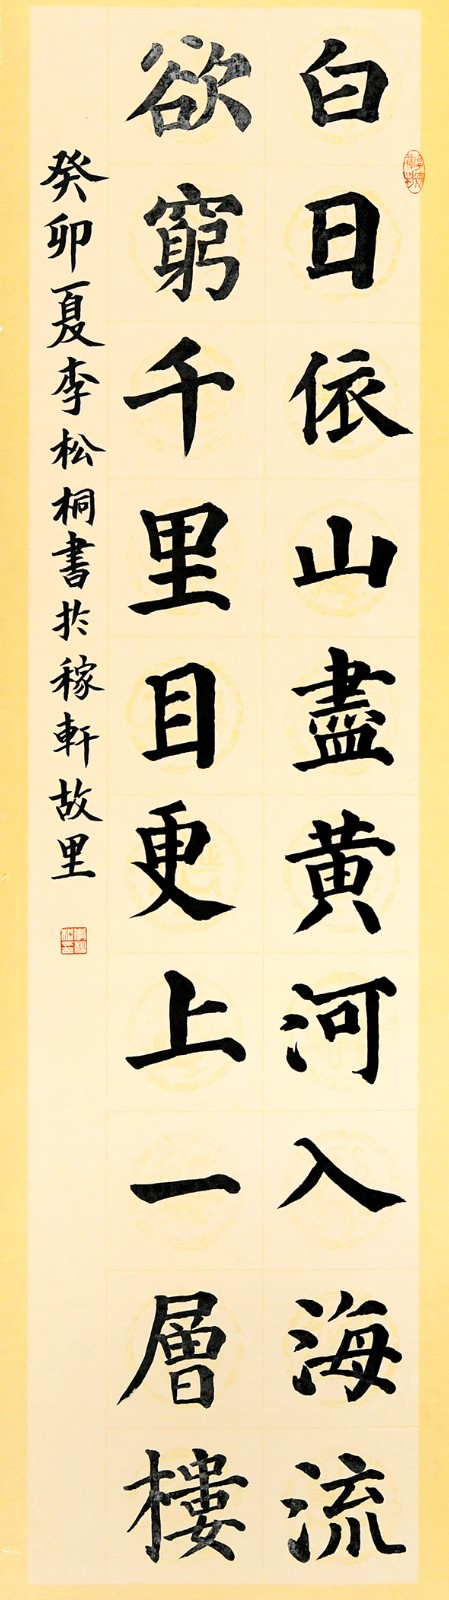 白日依山盡黄河入海流
欲窮千里目更上一層樓
癸卯夏李松桐書於稼軒故里